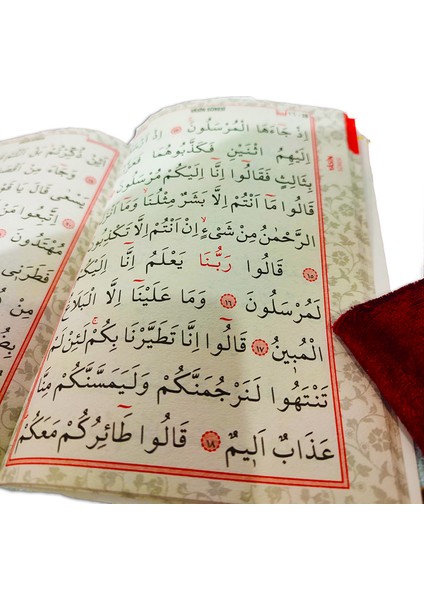 YÂSÎN SÛRESİ
اِذْ جَٓاءَهَا الْمُرْسَلُونَ اِذْ
اِلَيْهِمُ اثْنَيْنِ فَكَذَّبُوهُمَا
بِثَالِثٍ فَقَالُٓوا اِنَّٓا اِلَيْكُمْ مُرْسَلُونَ
قَالُوا مَٓا اَنْتُمْ اِلَّا بَشَرٌ مِثْلُنَاۙ وَمَٓا
الرَّحْمٰنُ مِنْ شَيْءٍۙ اِنْ اَنْتُمْ اِلَّا تَكْذِبُونَ
﴿١٥﴾ قَالُوا رَبُّنَا يَعْلَمُ اِنَّٓا اِلَيْكُمْ
لَمُرْسَلُونَ ﴿١٦﴾ وَمَا عَلَيْنَٓا اِلَّا الْبَلَاغُ
الْمُبٖينُ ﴿١٧﴾ قَالُٓوا اِنَّا تَطَيَّرْنَا بِكُمْۚ لَئِنْ لَمْ
تَنْتَهُوا لَنَرْجُمَنَّكُمْ وَلَيَمَسَّنَّكُمْ مِنَّا
عَذَابٌ اَلٖيمٌ ﴿١٨﴾ قَالُوا طَٓائِرُكُمْ مَعَكُمْ
YÂSÎN
اَئِنْ ذُكِّرْتُمْ بَلْ
وَجَٓاءَ مِنْ
يَسْعٰى قَالَ يَا
اِتَّبِعُوا مَنْ
مُهْتَدُونَ
فَطَرَنٖى
مِنْ